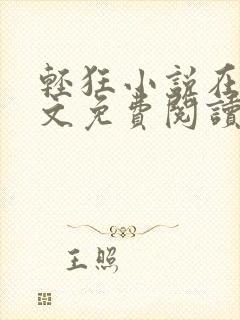 輕狂小說在
文免費閱讀
王照